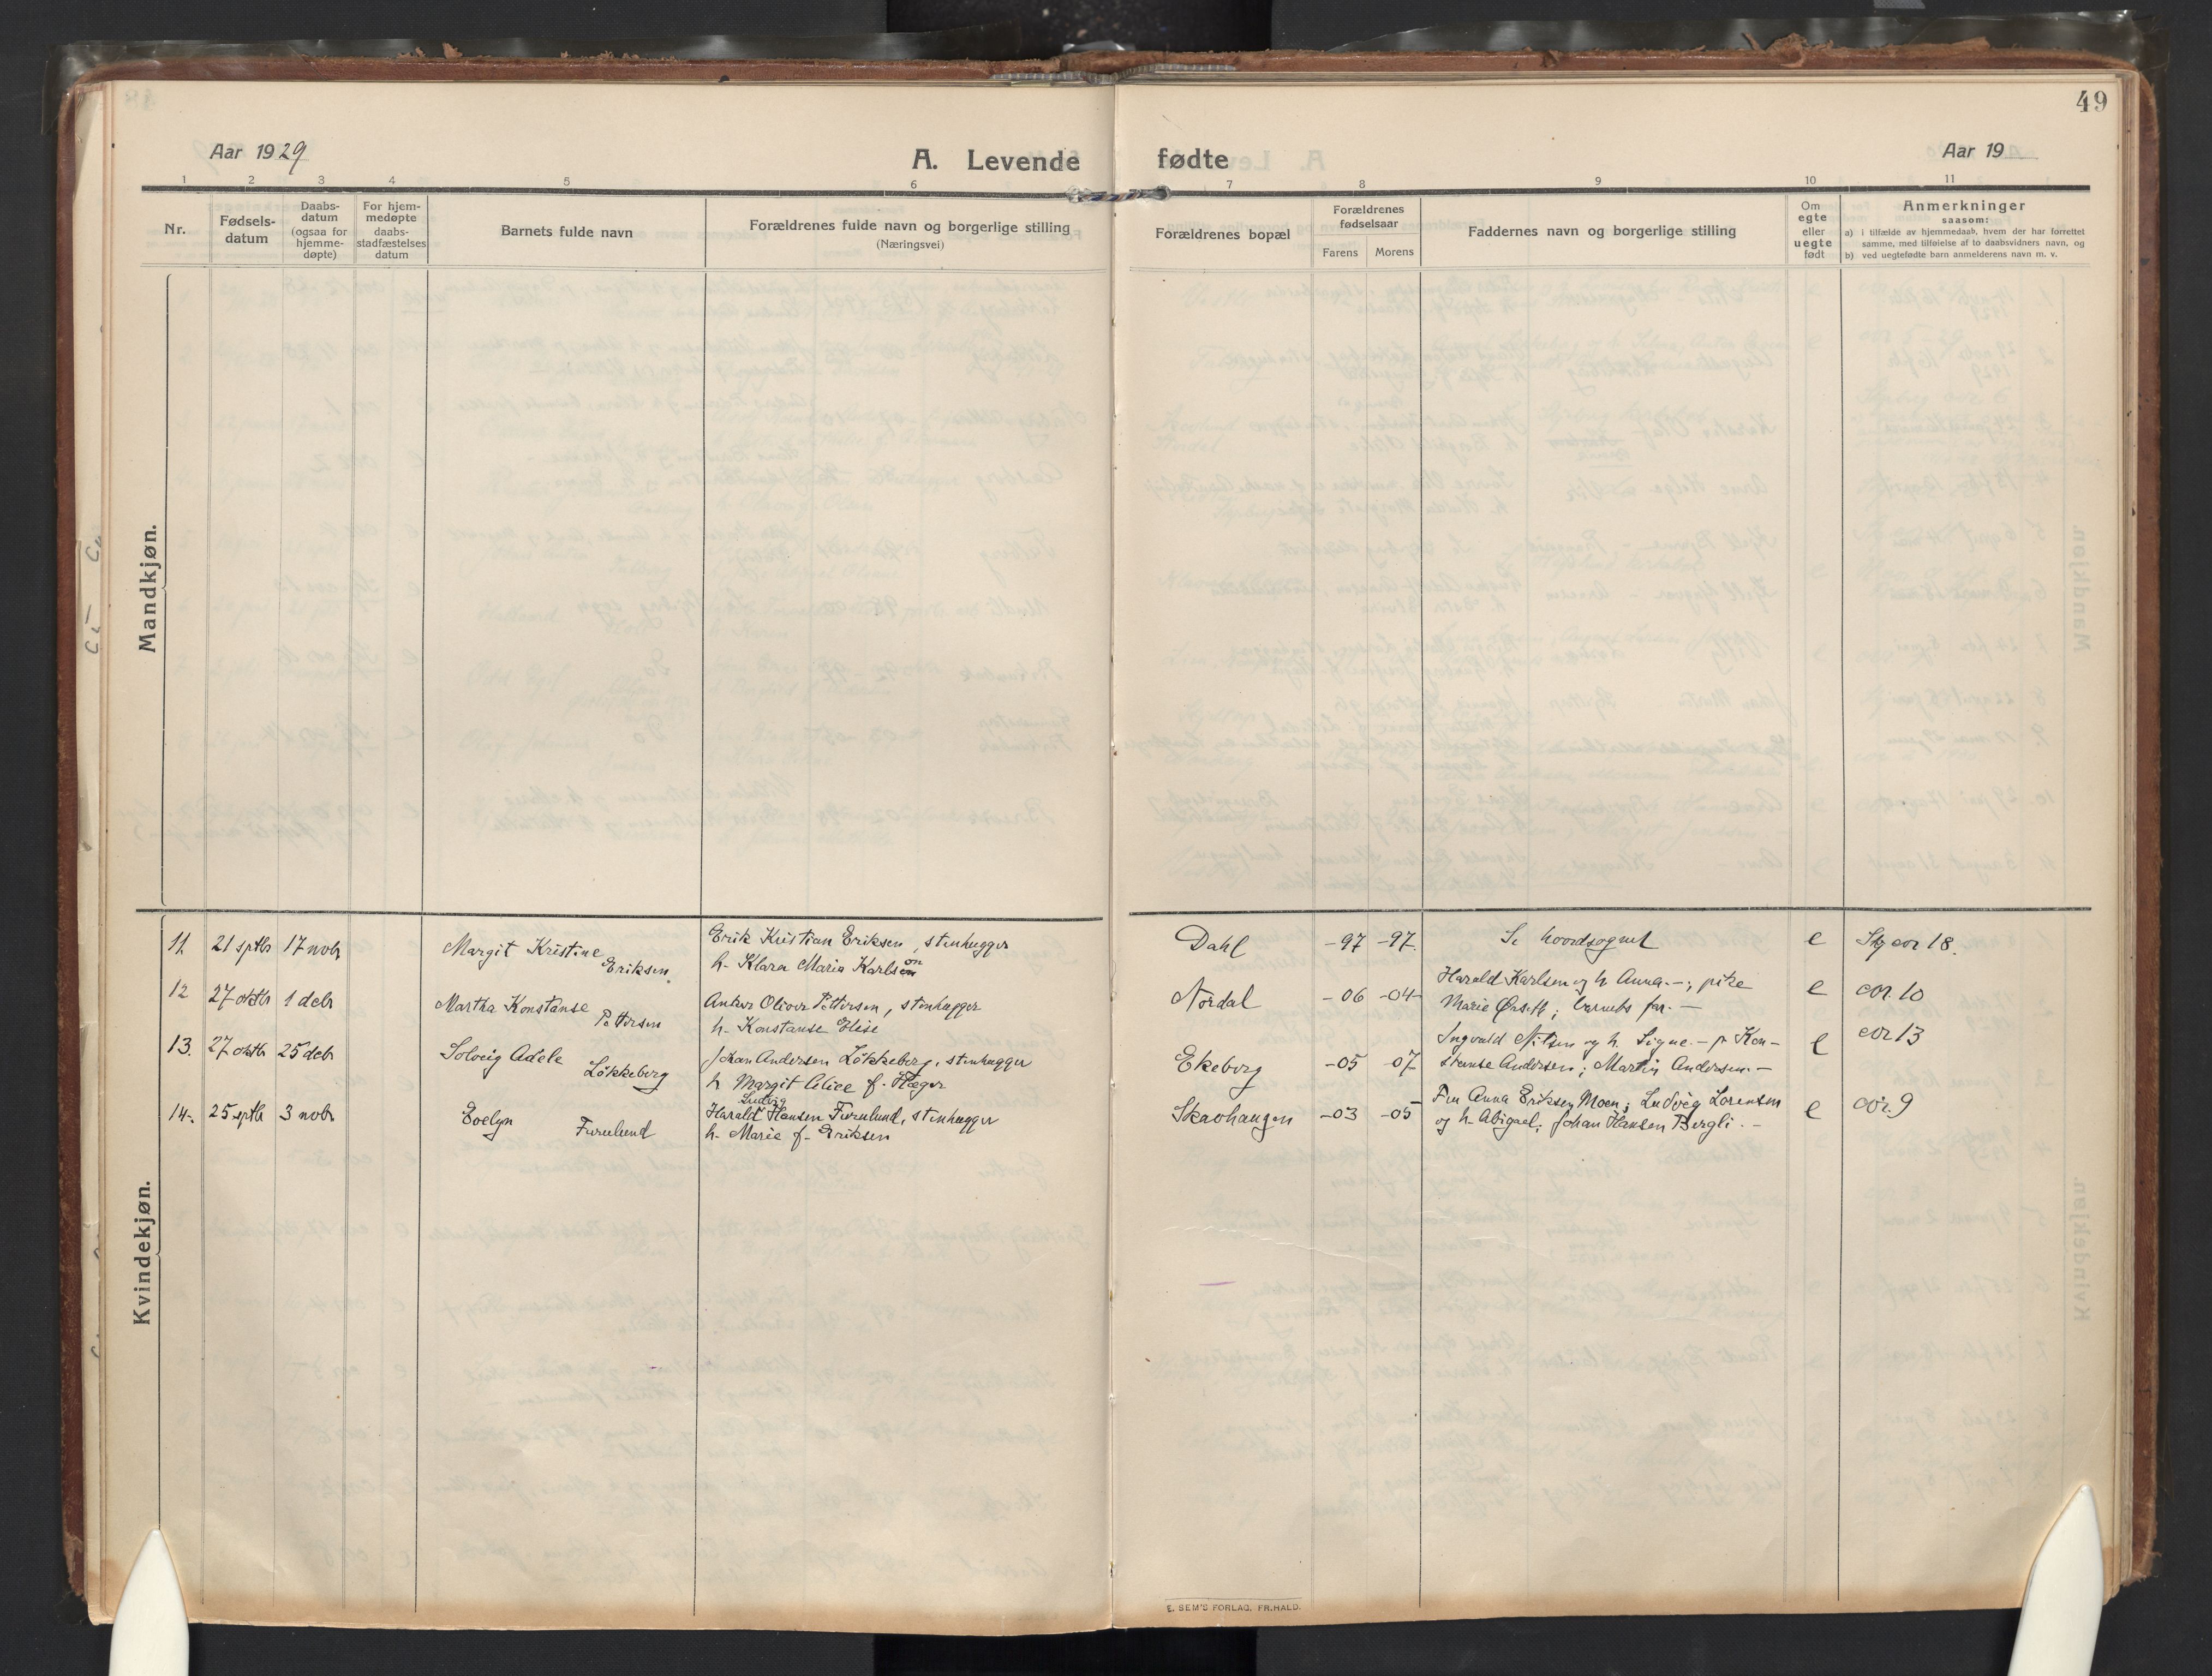 49
Aar 1929
A. Levende fødte
Aar 19
1 2 3 4 5 6 7 8 9 10 11
Nr.
Fødsels-
datum
Daabs-
datum
(ogsaa for
hjemme-
døpte)
For hjem-
medøpte
daabs-
stadfæstelses
datum
Barnets fulde navn
Forældrenes fulde navn og borgerlige stilling
(Næringsvei)
Forældrenes bopæl
Forældrenes
fødselsaar
Farens Morens
Faddernes navn og borgerlige stilling
Om
egte
eller
uegte
født
Anmerkninger
saasom:
a) i tilfælde av hjemmedaab, hvem der har forrettet
samme, med tilføielse af to daabsvidners navn, og
b) ved uegtefødte barn anmelderens navn m. v.
Mandkjøn.
Kvindekjøn.
11 21 sptbr 17 nobr Margit Kristine
Eriksen
Erik Kristian Eriksen, stenhugger
h. Klara Maria Karlson
Dahl -97 -97 Se hovedsognet e cor 18.
12 27 oktbr 1 debr Martha Konstanse
Pettersen
Anton Oliver Pettersen, stenhugger
h. Konstanse Elise
Nordal -06 -04 Harald Karlsen og h. Anna -; pike
Marie ; barnets far. - e cor. 10
13. 27 oktbr 25 debr Solveig Adele
Løkkeberg
Johan Andersen Løkkeberg, stenhugger
h Margit Alice f. Hæger
Ekeberg -05 -07 Ingvald Nilsen og h. Signe. - p Kon-
stanse Andersen; Martin Andersen. - e cor 13
14. 25 sptbr 3 nobr Evelyn
Furulund
Ludvig
Harald Hansen Furulund, stenhugger
h. Marie f. Eriksen
Skavhaugen -03 -05 Fru Anna Eriksen Moen; Ludvig Lorensen
og h. Abigael; Johan Hansen Bergli. - e cor. 9
E. SEM'S FORLAG, FR.HALD.